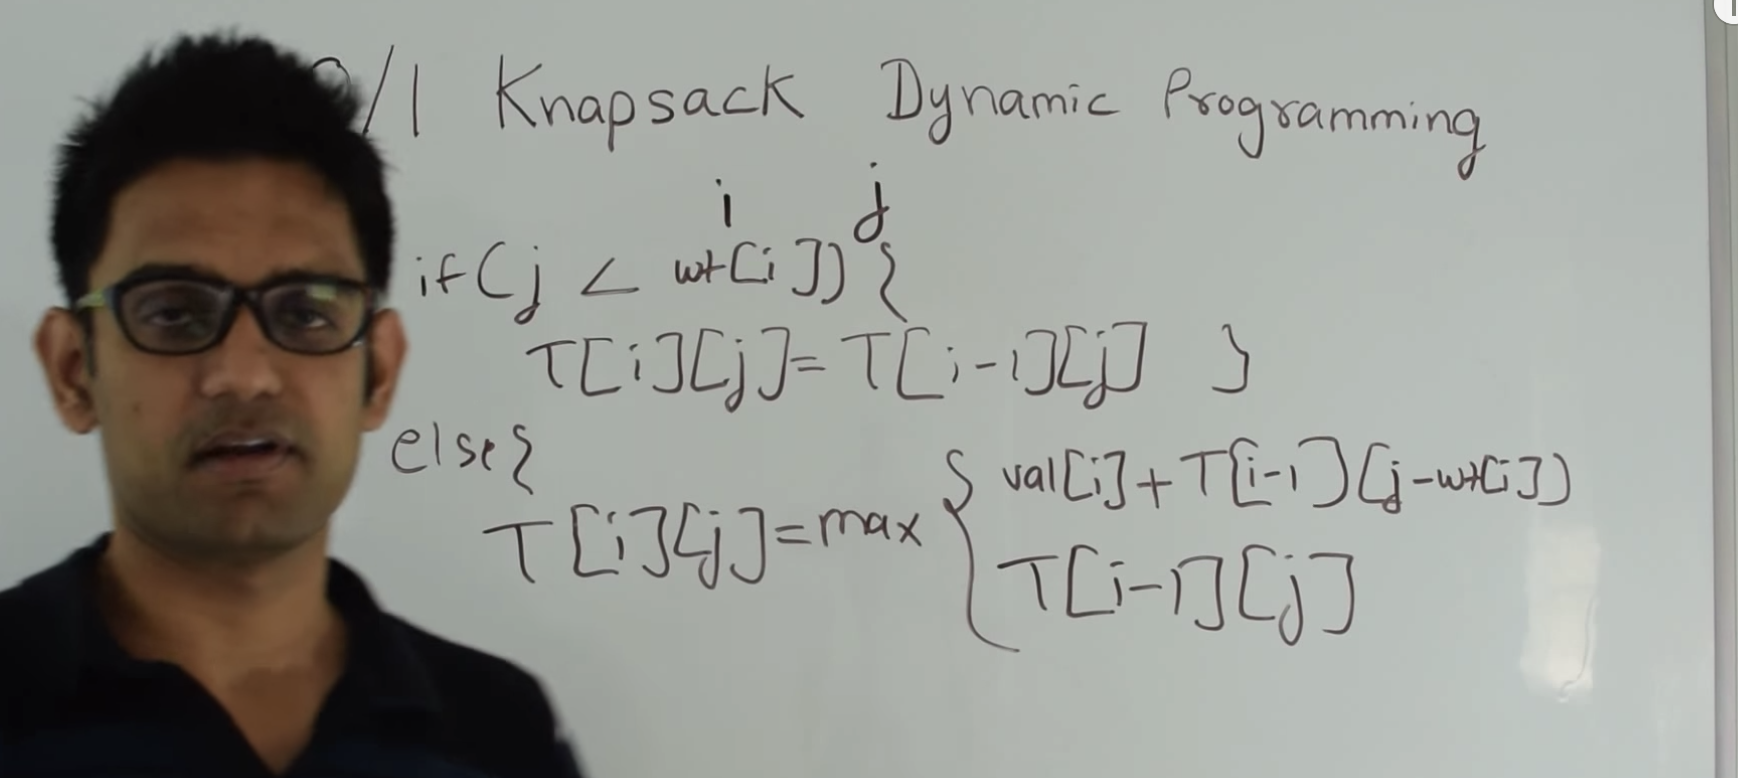 0/1 Knapsack Dynamic Programming
i j
if(j < wt[i]) {
T[i][j]= T[i-1][j] }
else{
T[i][j]=max { val[i]+T[i-1][j-wt[i]]
T[i-1][j]